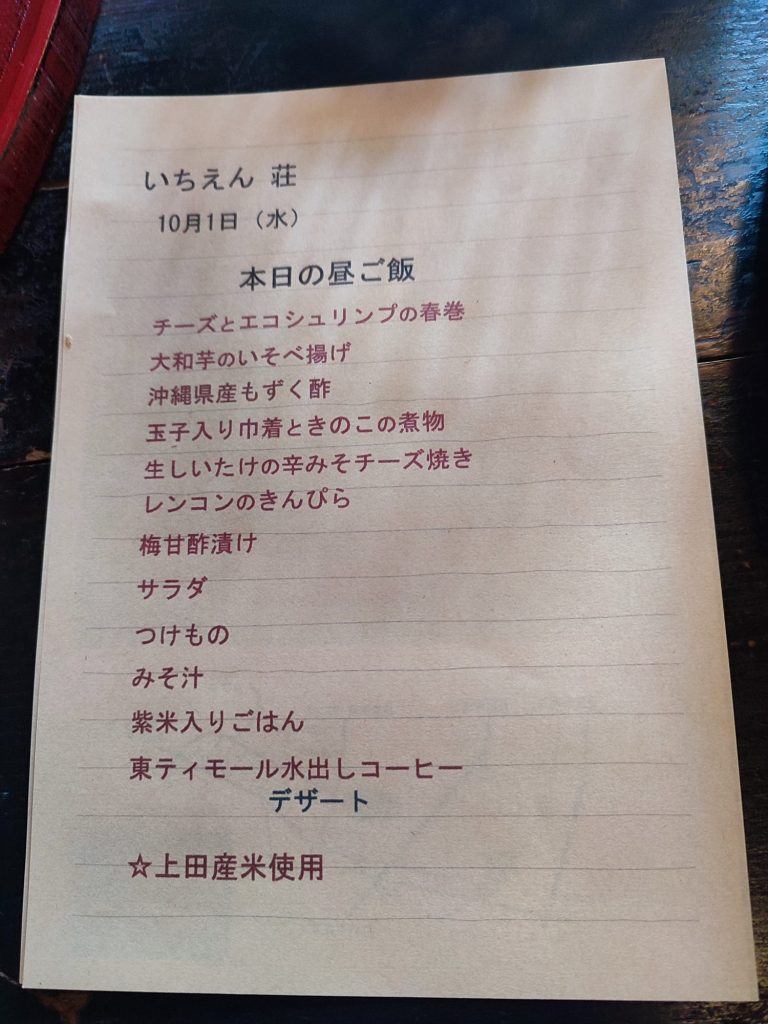 いちえん 荘
10月1日（水）
本日の昼ご飯
チーズとエコシュリンプの春巻
大和芋のいそべ揚げ
沖縄県産もずく酢
玉子入り巾着ときのこの煮物
生しいたけの辛みそチーズ焼き
レンコンのきんぴら
梅甘酢漬け
サラダ
つけもの
みそ汁
紫米入りごはん
東ティモール水出しコーヒー
デザート
☆上田産米使用